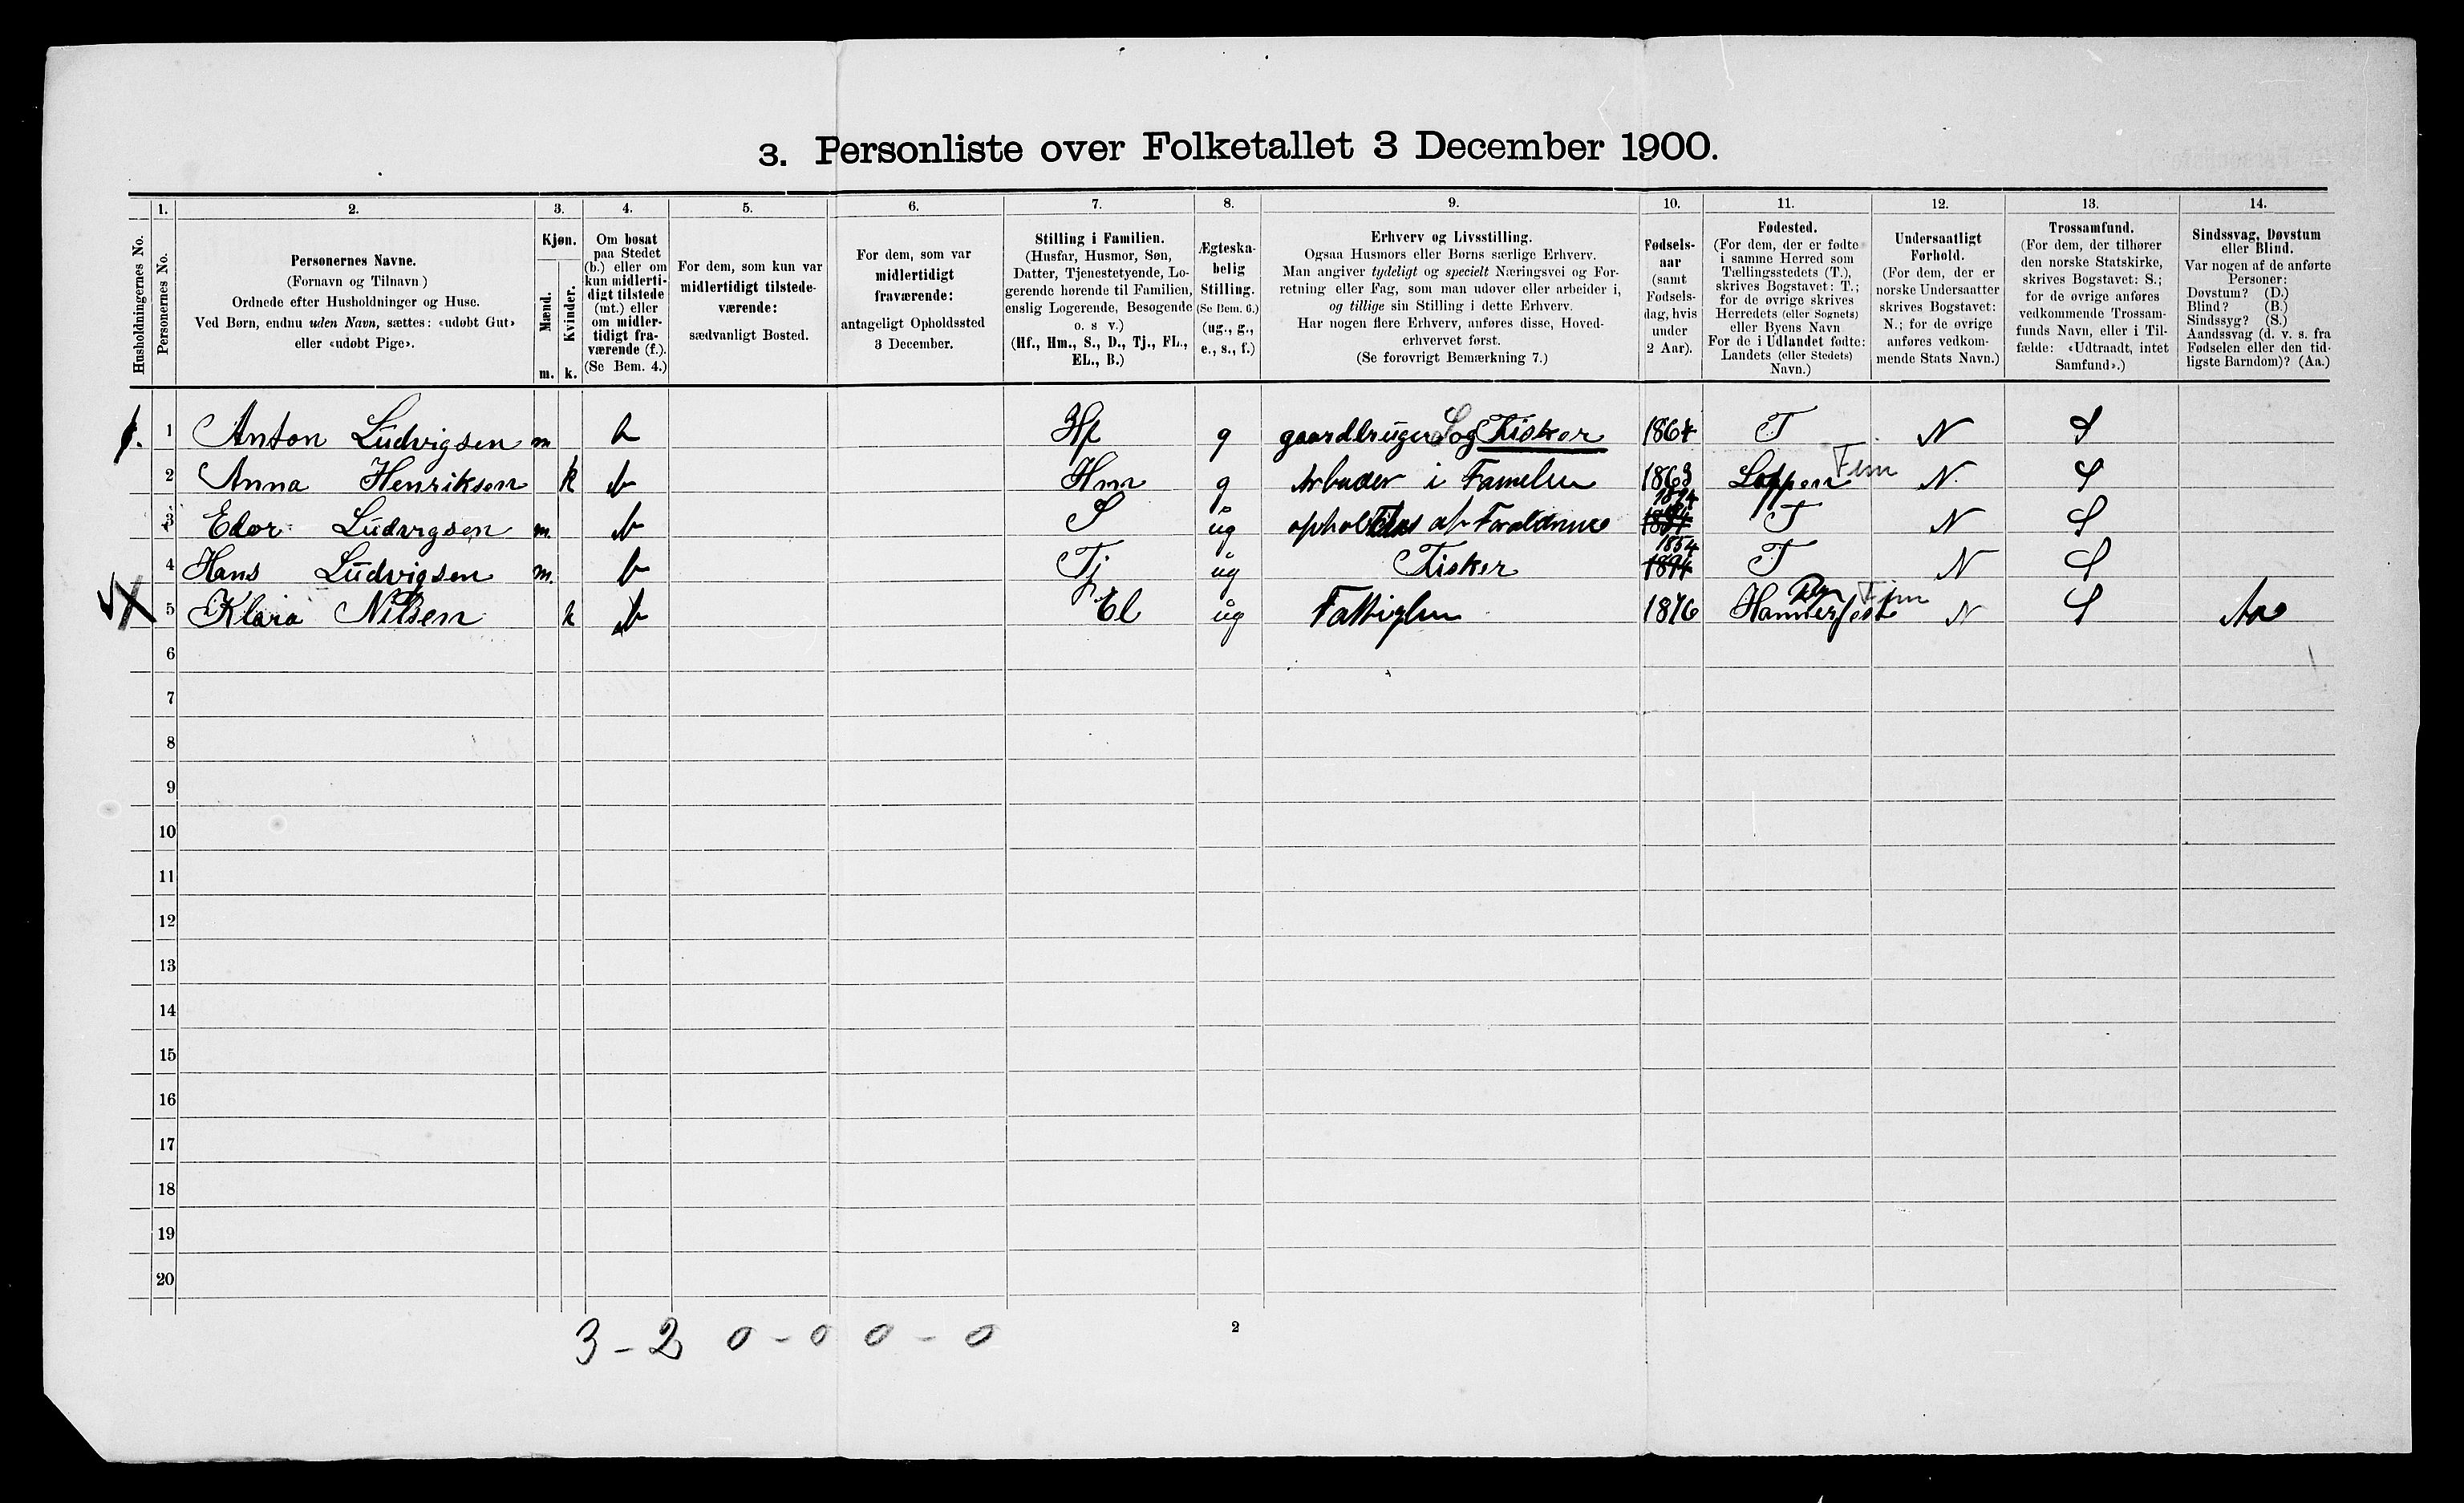 3. Personliste over Folketallet 3 December 1900.
1. 2. 3. 4. 5. 6. 7. 8. 9. 10. 11. 12. 13. 14.
Husholdningernes No.
Personernes No.
Personernes Navne.
(Fornavn og Tilnavn)
Ordnede efter Husholdninger og Huse.
Ved Børn, endnu uden Navn, sættes: «udøbt Gut»
eller «udøbt Pige».
Kjøn.
Mænd.
Kvinder.
m. k.
Om bosat
paa Stedet
(b.) eller om
kun midlerti-
digt tilstede
(mt.) eller
om midler-
tidigt fra-
værende (f.).
(Se Bem. 4.)
For dem, som kun var
midlertidigt tilstede-
værende:
sædvanligt Bosted.
For dem, som var
midlertidigt
fraværende:
antageligt Opholdssted
3 December.
Stilling i Familien.
(Husfar, Husmor, Søn,
Datter, Tjenestetyende, Lo-
gerende hørende til Familien,
enslig Logerende, Besøgende
o. s v.)
(Hf., Hm., S., D., Tj., FL.,
EL., B.)
Ægteska-
belig
Stilling.
(Se Bem. 6.)
(ug., g.,
e., s., f.)
Erhverv og Livsstilling.
Ogsaa Husmors eller Børns særlige Erhverv.
Man angiver tydeligt og specielt Næringsvei og For-
retning eller Fag, som man udøver eller arbeider i,
og tillige sin Stilling i dette Erhverv.
Har nogen flere Erhverv, anføres disse, Hoved-
erhvervet først.
(Se forøvrigt Bemærkning 7.)
Fødsels-
aar
(samt
Fødsels-
dag, hvis
under
2 Aar).
Fødested.
(For dem, der er fødte
i samme Herred som
Tællingsstedets (T.),
skrives Bogstavet: T.;
for de øvrige skrives
Herredets (eller Sognets)
eller Byens Navn
For de i Udlandet fødte:
Landets (eller Stedets)
Navn.)
Undersaatligt
Forhold.
(For dem, der er
norske Undersaatter
skrives Bogstavet:
N.; for de øvrige
anføres vedkom-
mende Stats Navn.)
Trossamfund.
(For dem, der tilhører
den norske Statskirke,
skrives Bogstavet: S.;
for de øvrige anføres
vedkommende Trossam-
funds Navn, eller i Til-
fælde: «Udtraadt, intet
Samfund».)
Sindssvag, Døvstum
eller Blind.
Var nogen af de anførte
Personer:
Døvstum? (D.)
Blind? (B.)
Sindssyg? (S.)
Aandssvag (d. v. s. fra
Fødselen eller den tid-
ligste Barndom)? (Aa.)
1. 1 Anton Ludvigsen m b Hf g gaardbruger S og Fisker 1864 T N S
2 Anna Henriksen k b Hm g Arbeider i Familien 1863 Loppen Finm N. S
1894
3 Edor Ludvigsen m. b S ug af Forældrene T N S
1854
4 Hans Ludvigsen m. b Tj ug Fisker 1894 T N S
5 Klara Nilsen k b El ug Fattiglem 1876 Hammerfest Finm N S Aa
6
7
8
9
10
11
12
13
14
15
16
17
18
19
20
3 - 2 0 - 0 0 - 0
2